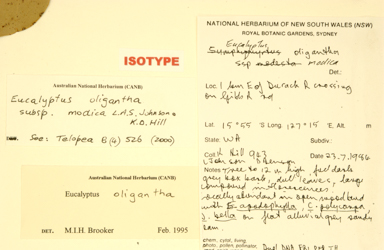 ISOTYPE
Australian National Herbarium (CANB)
Eucalyptus oligantha
subsp. modica L.A.S. Johnson &
K.D. Hill
See: Telopea 8(4) 526 (2000)
Australian National Herbarium (CANB)
Eucalyptus oligantha
M.I.H. Brooker Feb. 1995
NATIONAL HERBARIUM OF NEW SOUTH WALES (NSW)
ROYAL BOTANIC GARDENS, SYDNEY
Eucalyptus
oligantha
ssp modica
Det.:
Loc.: 1 km E of Durack R crossing
on Gibb R rd
Lat. 15°55' S Long. 127° E Alt. m
State: WA Subdiv.:
K Hill 23.7.1984
Johnson
Notes Tree to 12 m high, full dark
grey box bark, dull leaves, large
compound inflorescences
locally abundant in open
with E. apodophylla, E. polycarpa
bella on flat alluvial grey sandy
chem, cytol, living
photo, pollen, palmate